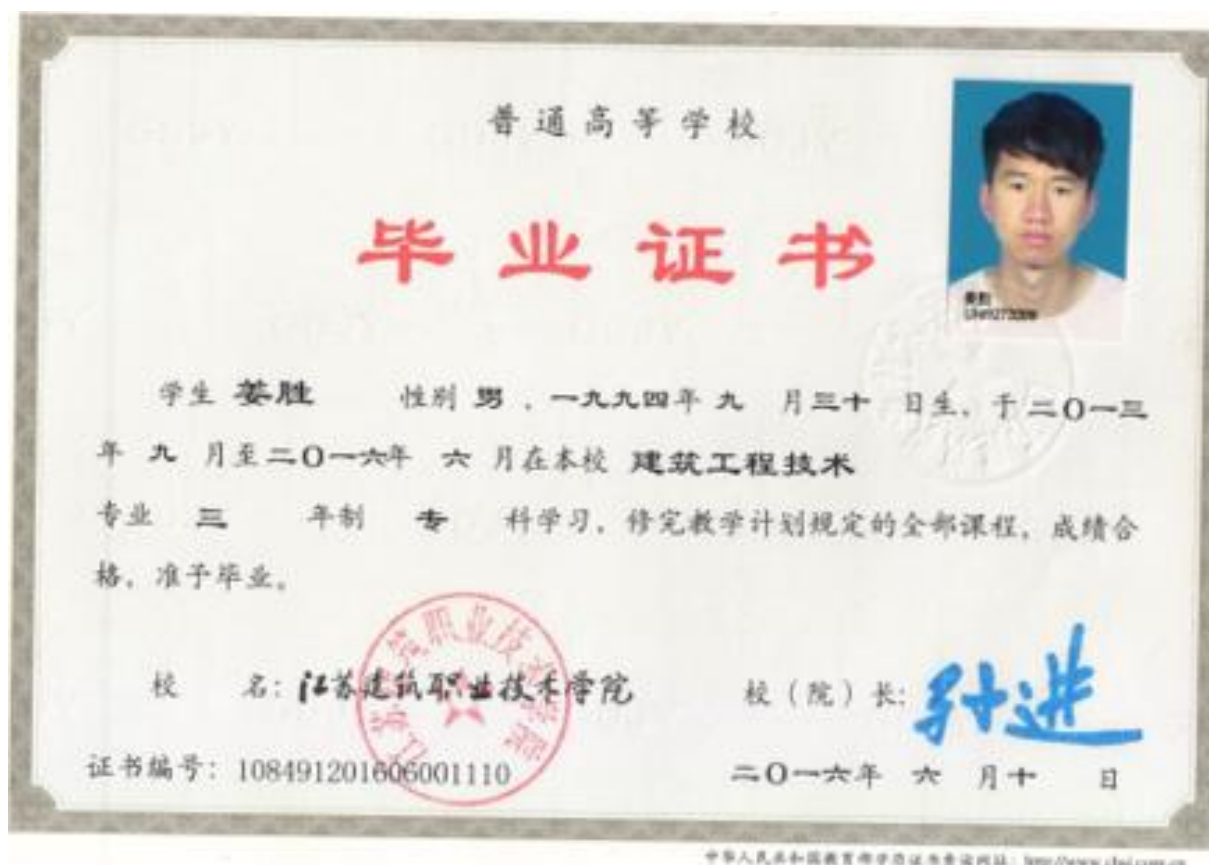 普通高等学校
毕业证书
姜胜
学生 姜胜 性别 男，一九九四年 九 月三十 日生，于二〇一三
年 九 月至二〇一六年 六 月在本校 建筑工程技术
专业 三 年制 专 科学习，修完教学计划规定的全部课程，成绩合
格，准予毕业。
校 名：江苏建筑职业技术学院 校（院）长：孙进
证书编号：108491201606001110 二〇一六年 六 月十 日
中华人民共和国教育部学历证书查询网址：http://www.chsi.com.cn